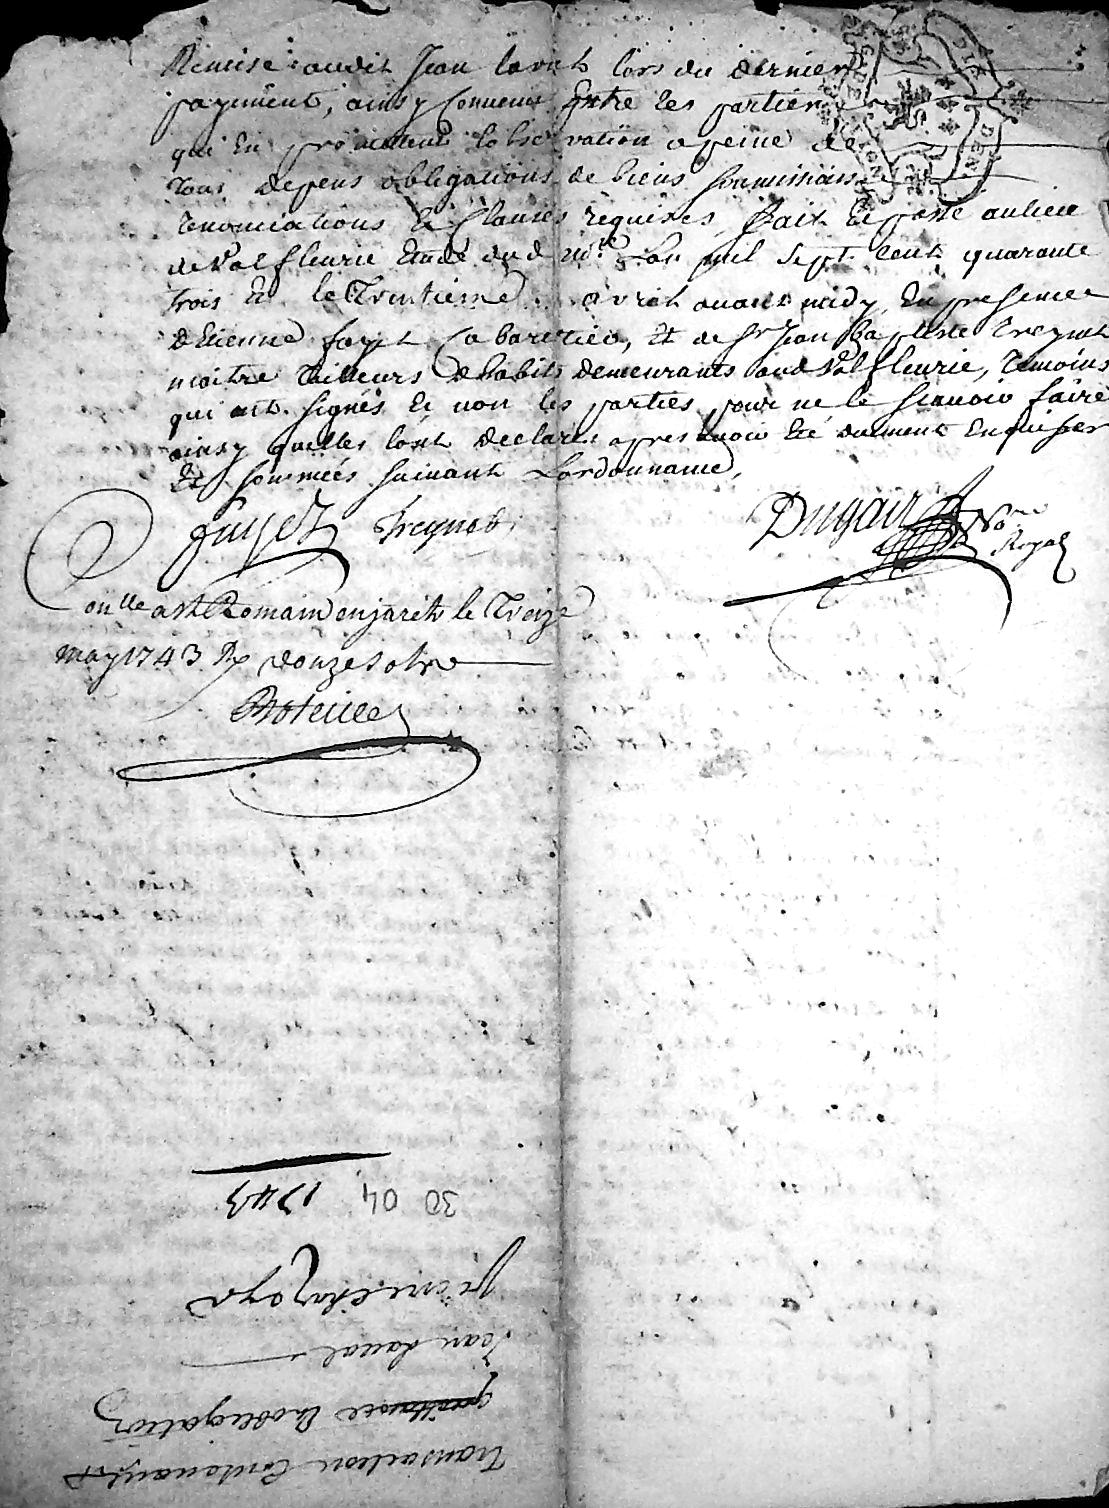 Remise audit Jean laval lors du dernier
payement, ainsy convenu Entre les parties
qui En promettent lobservation a peine de
tous depens obligations de biens soumissions
renonciations Et Clauses requises fait Et passé au lieu
de Valfleurie Etude dud mre Lan mil sept Cent quarante
trois Et le trentieme avril avant midy En presence
dEtienne fayet Cabaretier, Et de sr Jean Baptiste treynet
maitre tailleurs dhabits demeurants aud Valfleurie, temoins
qui ont signés Et non les parties pour ne le scavoir faire
ainsy quelles lont declaré apres avoir Eté dument Enquises
Et sommées suivant Lordonnance,
fayet treynet Dugair Nore
Royal
Conlle a St Romain en jarêts le treize
may 1743 R douze sols
30 04 1743
pierre
Jean Laval
quittance Et obligation
Transaction Contenant